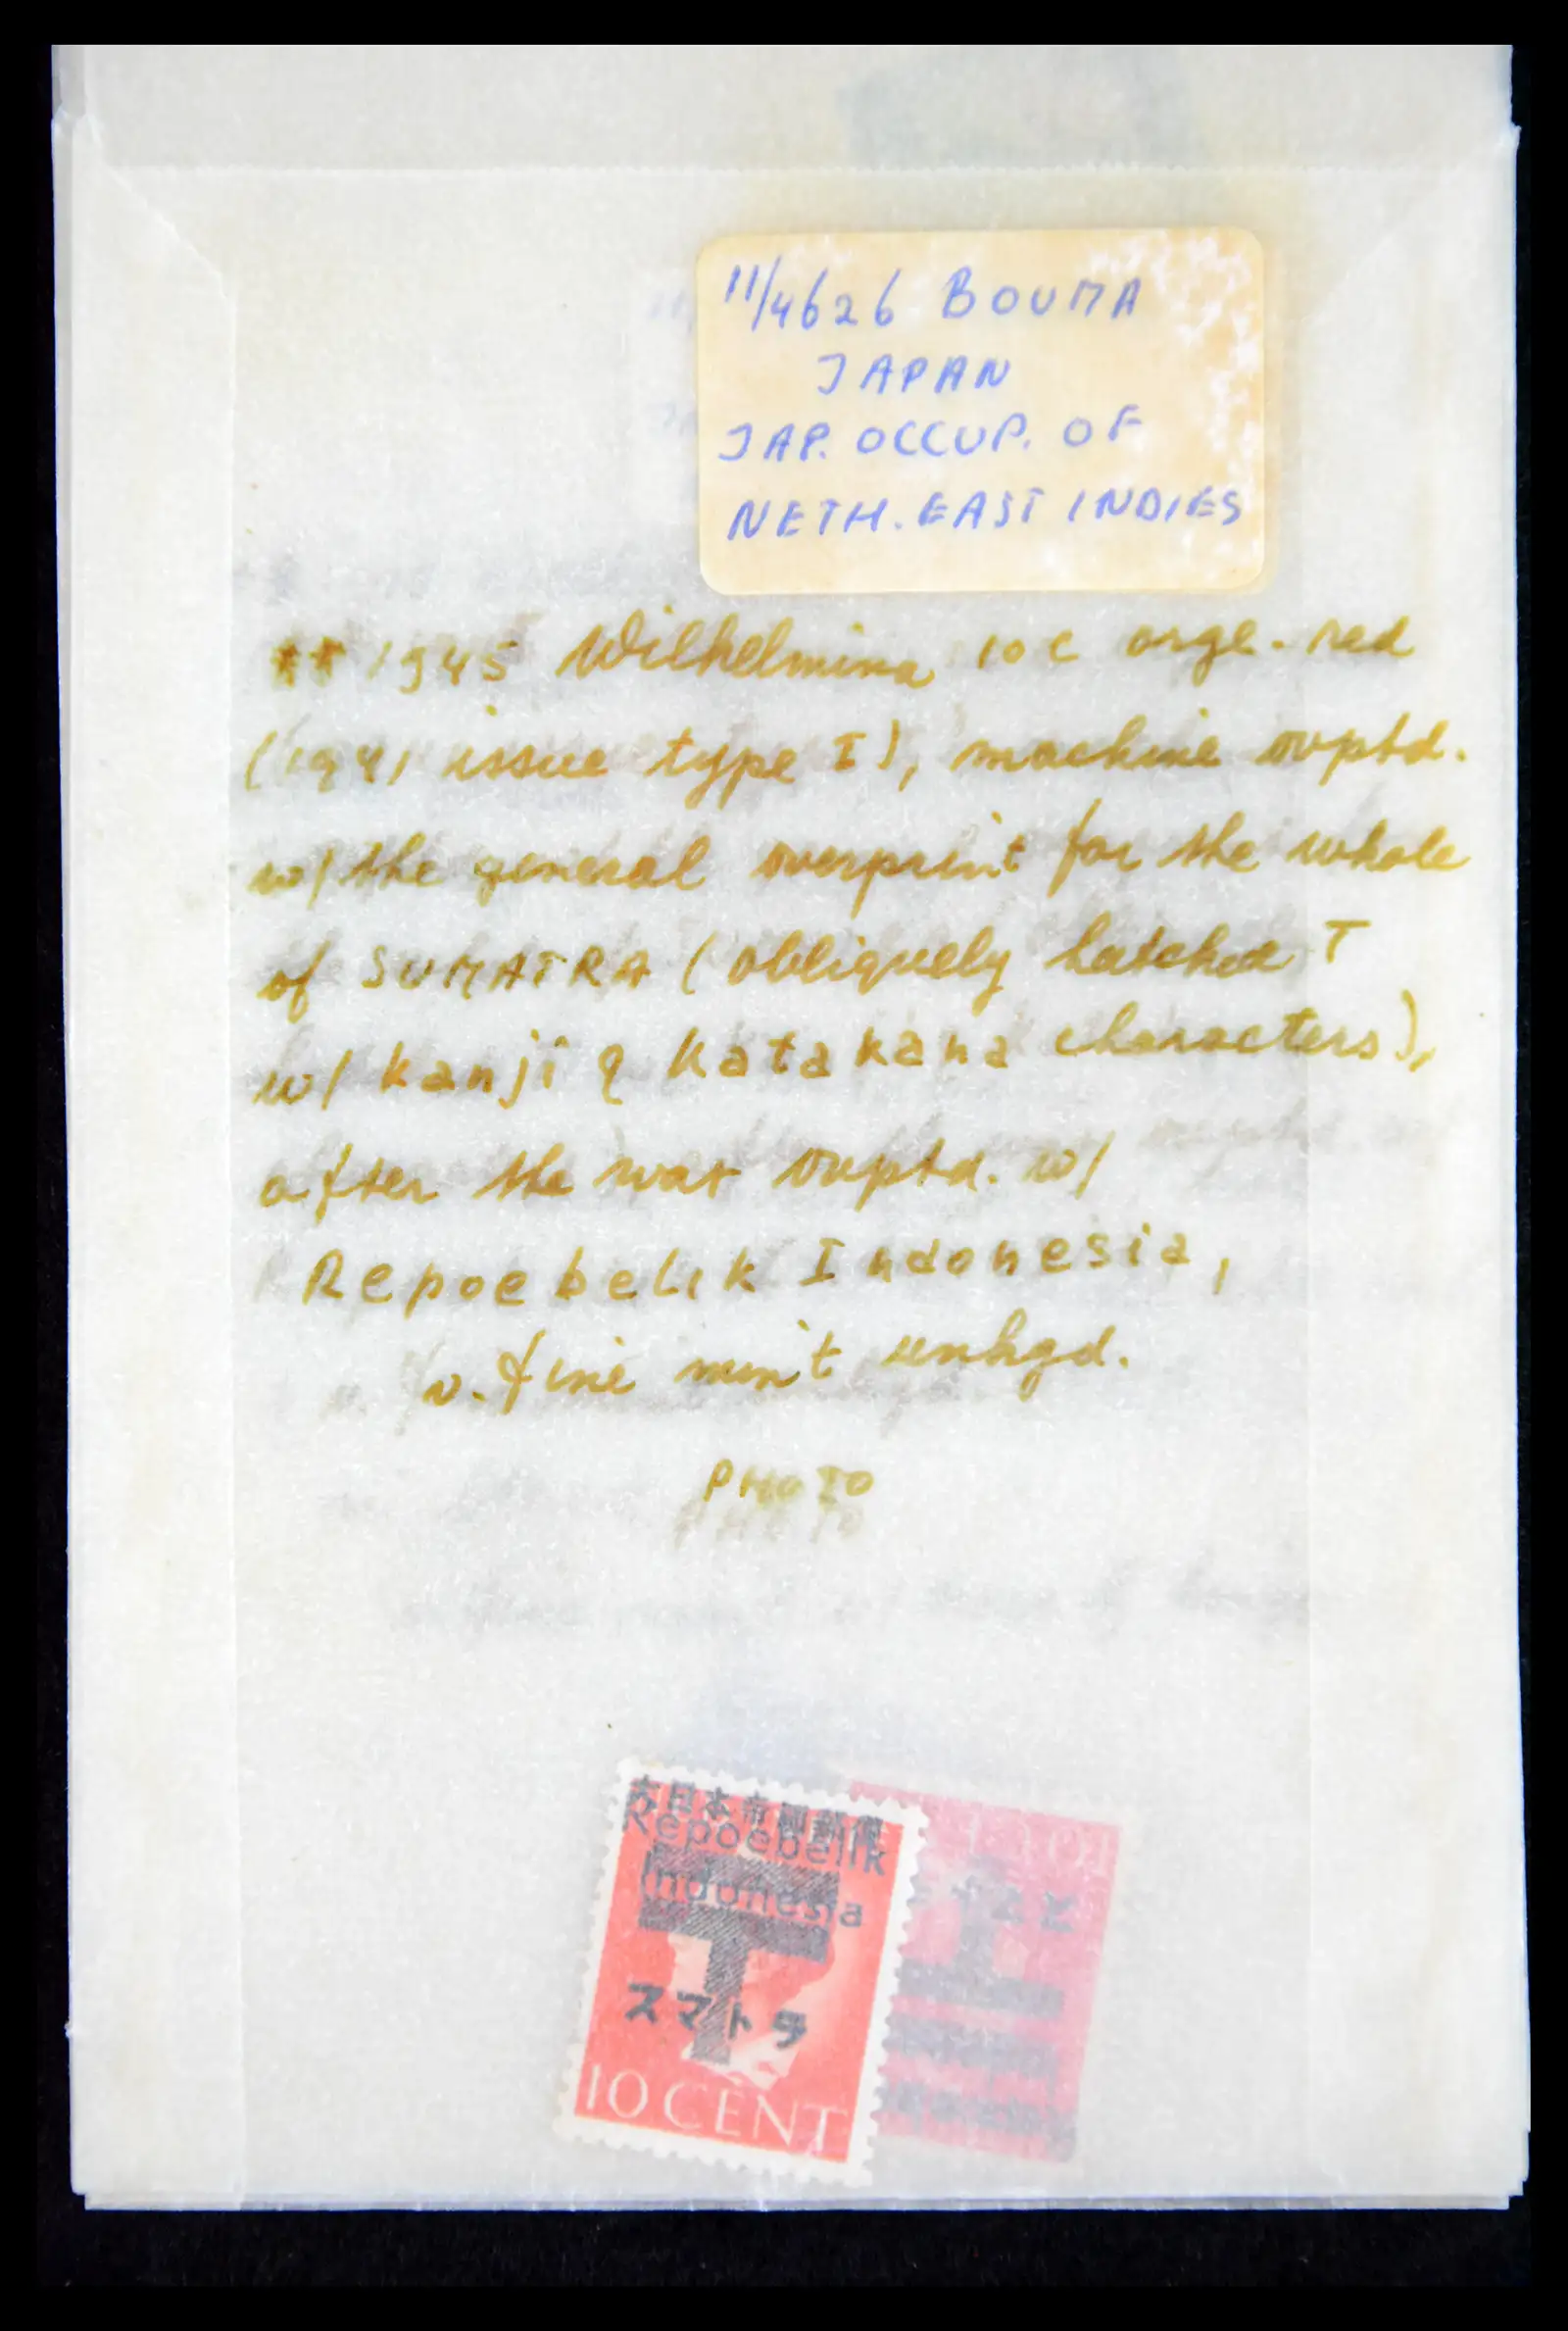 11/4626 BOUMA
JAPAN
JAP. OCCUP. OF
NETH. EAST INDIES
** 1945 Wilhelmina 10 c orge.-red
(1941 issue type I), machine ovptd.
w/ the general overprint for the whole
of SUMATRA (obliquely hatched T
w/ kanji & Katakana characters),
after the war ovptd. w/
Repoebelik Indonesia,
v. fine mint unhgd.
PHOTO
大日本帝国郵便
Repoebelik
Indonesia
スマトラ
10 CENT